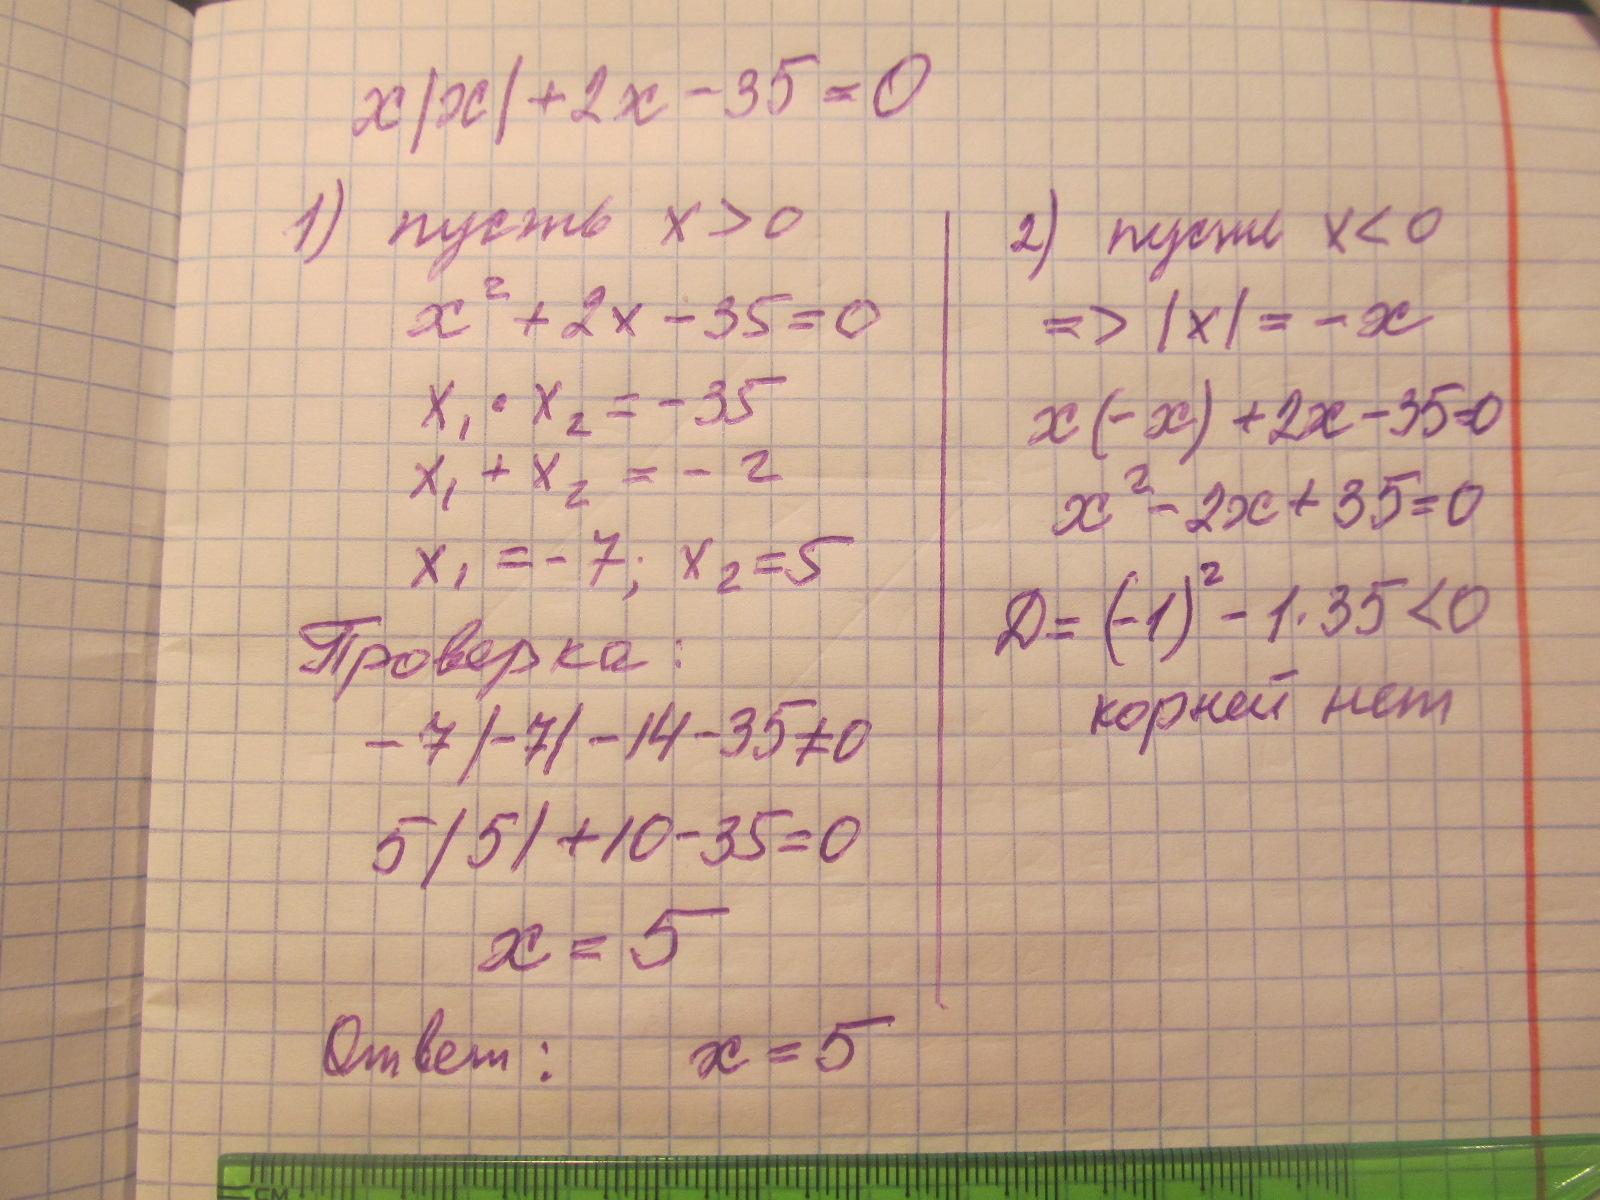 x|x|+2x-35=0
1) пусть x>0
x²+2x-35=0
x₁•x₂=-35
x₁+x₂=-2
x₁=-7; x₂=5
Проверка:
-7|-7|-14-35≠0
5|5|+10-35=0
x=5
2) пусть x<0
=> |x|=-x
x(-x)+2x-35=0
x²-2x+35=0
D=(-1)²-1·35<0
корней нет
Ответ: x=5
см